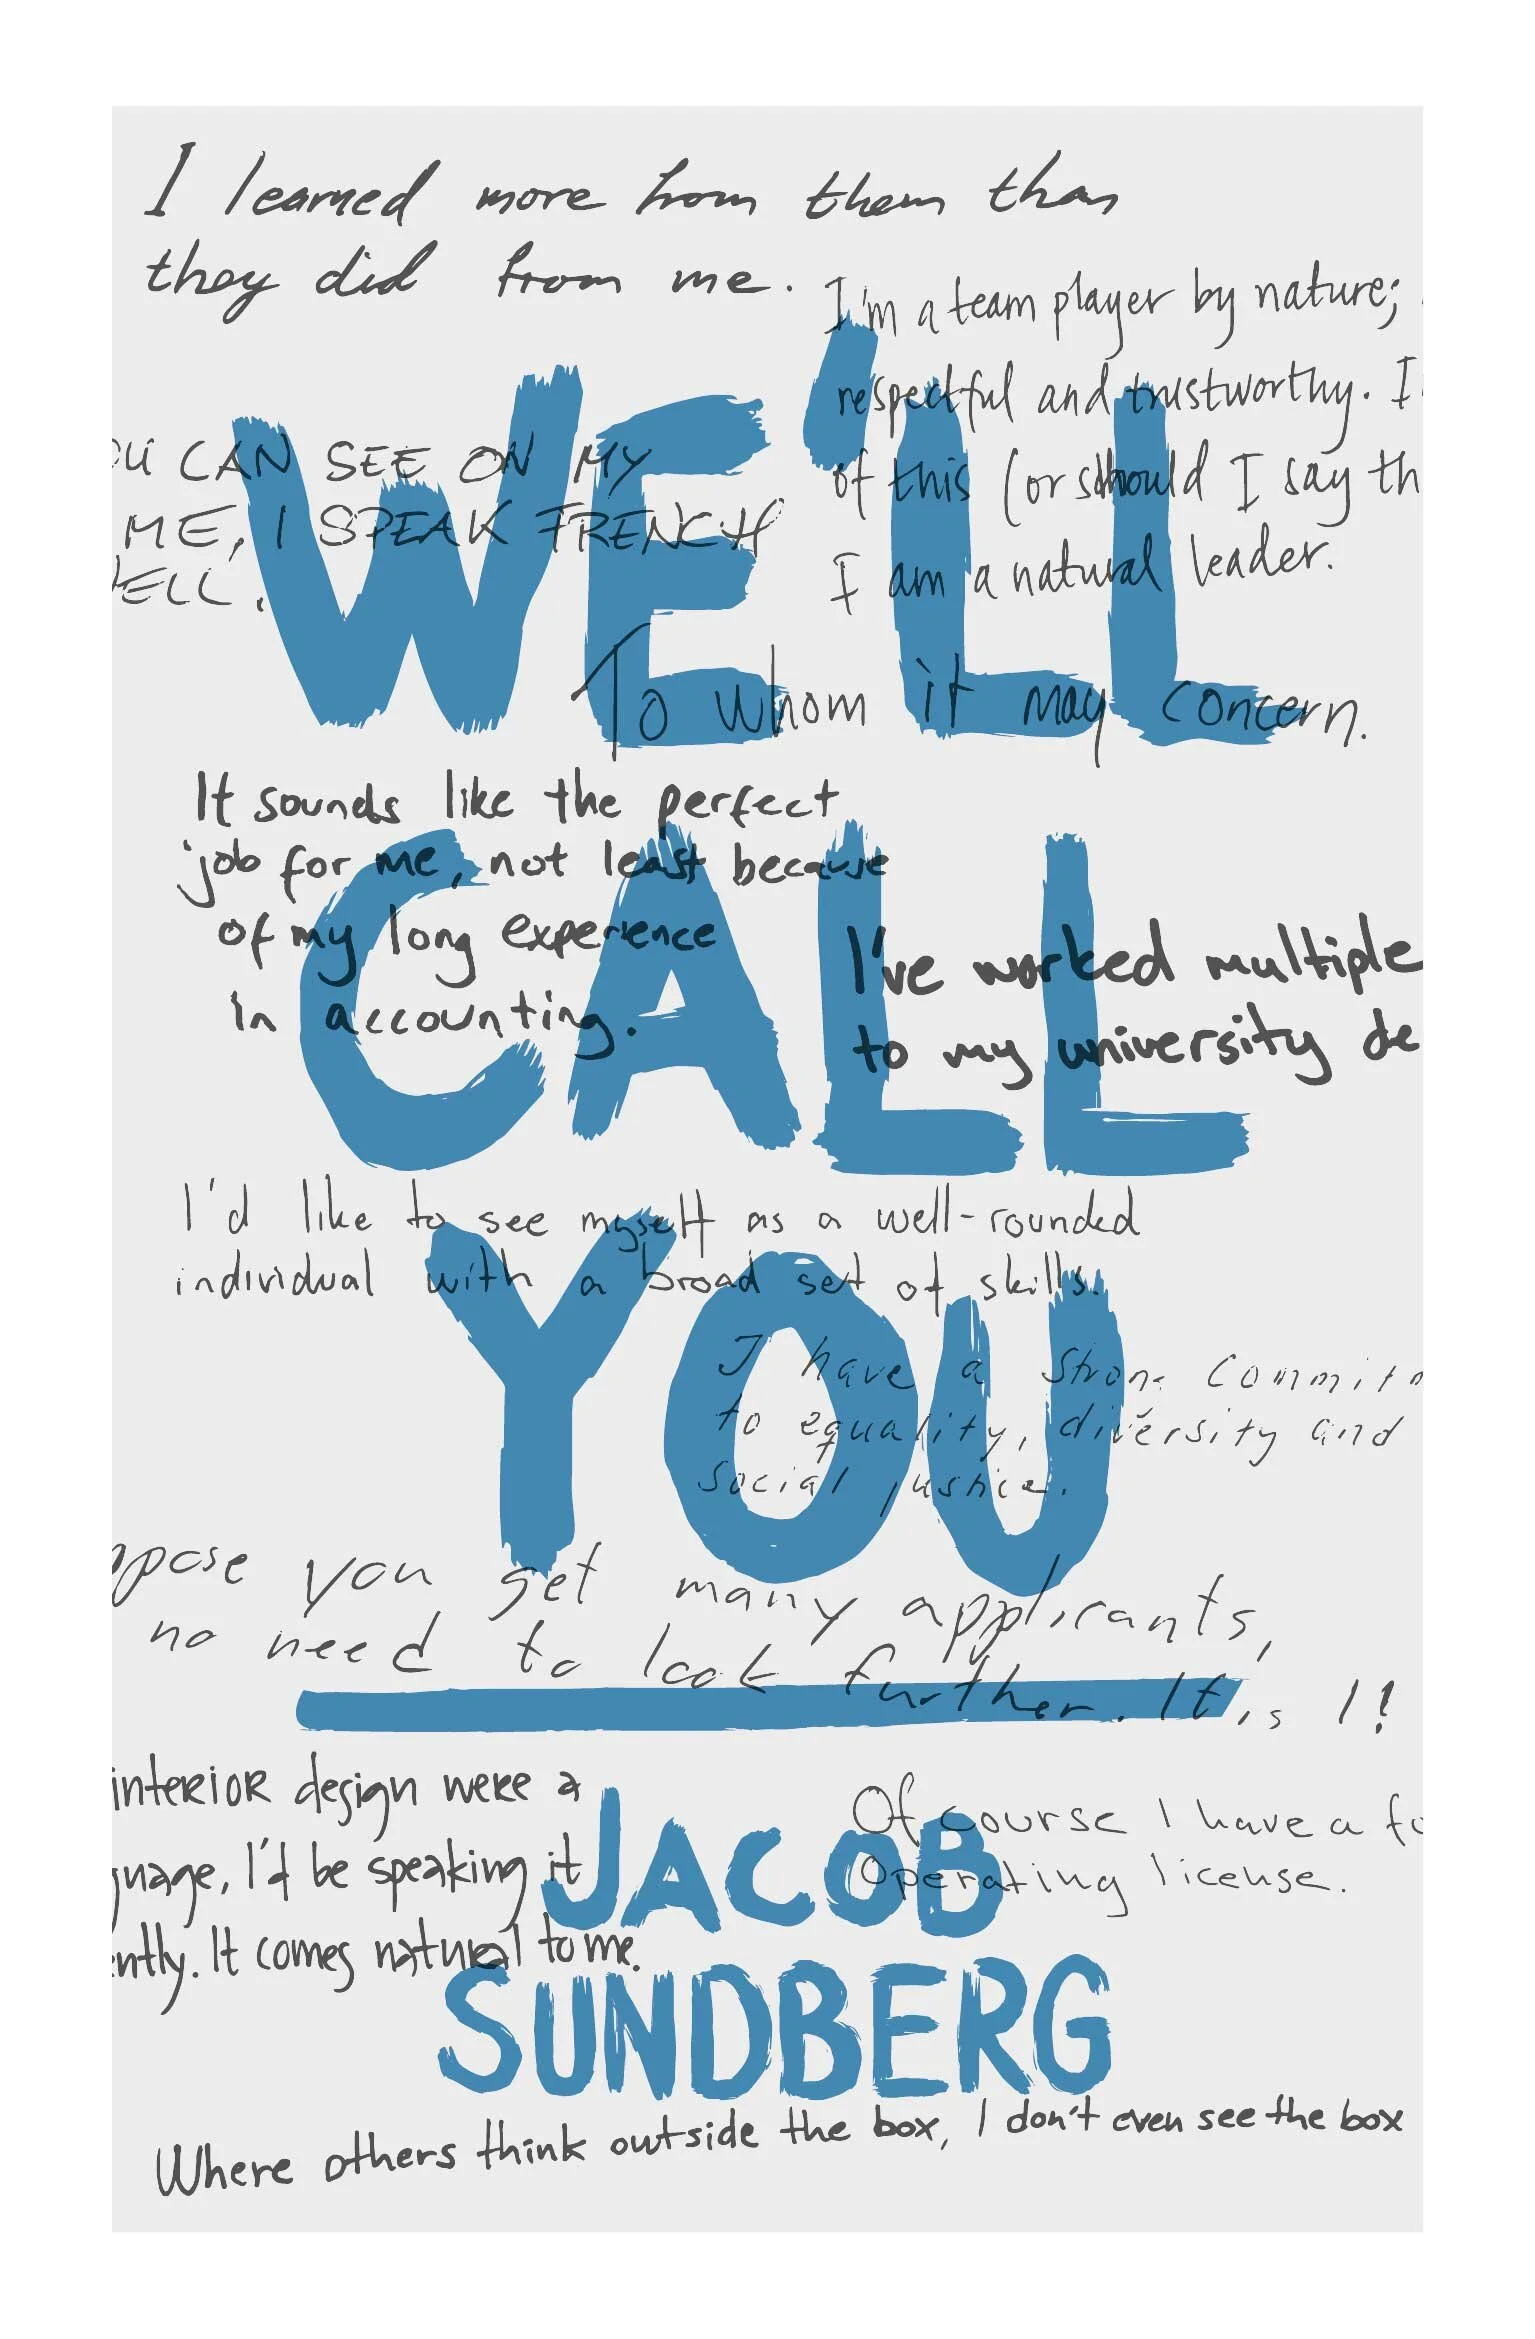 I learned more from them than
they did from me.
I'm a team player by nature;
respectful and trustworthy. I
of this (or should I say th
I am a natural leader.
OU CAN SEE ON MY
ME, I SPEAK FRENCH
ELL.
WE'LL
To whom it may concern.
It sounds like the perfect
job for me, not least because
of my long experience
in accounting.
I've worked multiple
to my university de
CALL
I'd like to see myself as a well-rounded
individual with a broad set of skills.
YOU
I have a strong commitm
to equality, diversity and
social justice.
ppose you get many applicants,
no need to look further. It is I!
interior design were a
guage, I'd be speaking it
ently. It comes natural to me.
Of course I have a fo
operating license.
JACOB
SUNDBERG
Where others think outside the box, I don't even see the box